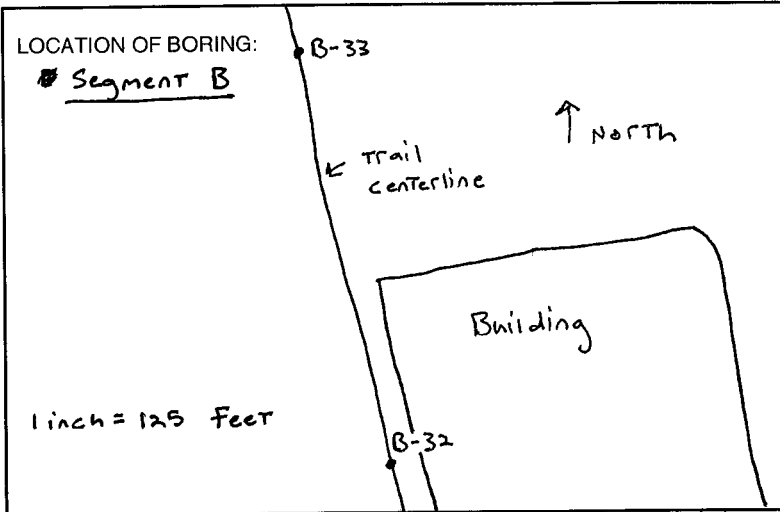 LOCATION OF BORING:
Segment B
B-33
North
Trail
centerline
Building
1 inch = 125 Feet
B-32